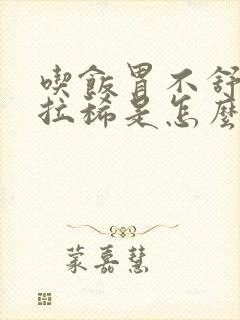 喫飯胃不舒
拉稀是怎麼
蒙嘉慧